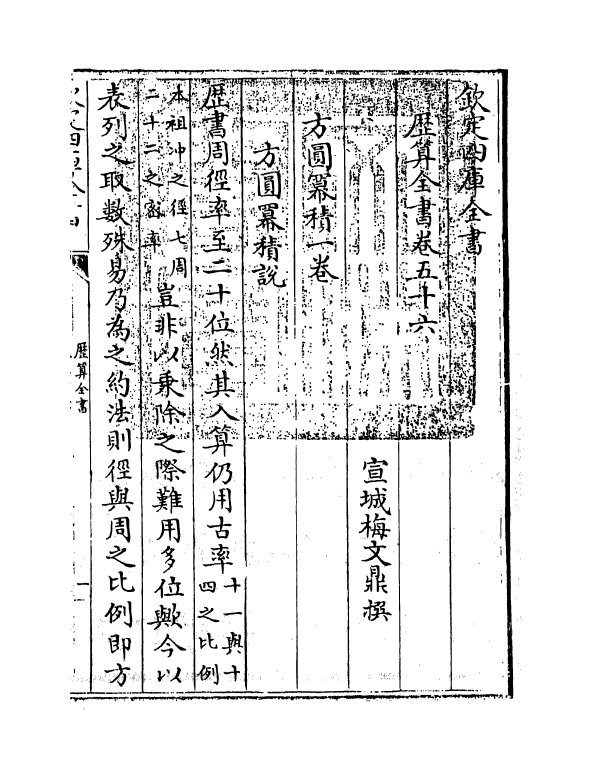 欽定四庫全書
歴算全書卷五十六
宣城梅文鼎撰
方圓冪積一卷
方圓冪積說
歴書周徑率至二十位然其入算仍用古率十一與十四之比例
本祖沖之徑七周二十二之密率豈非以乗除之際難用多位歟今以
表列之取數殊易乃為之約法則徑與周之比例即方
歴算全書
一